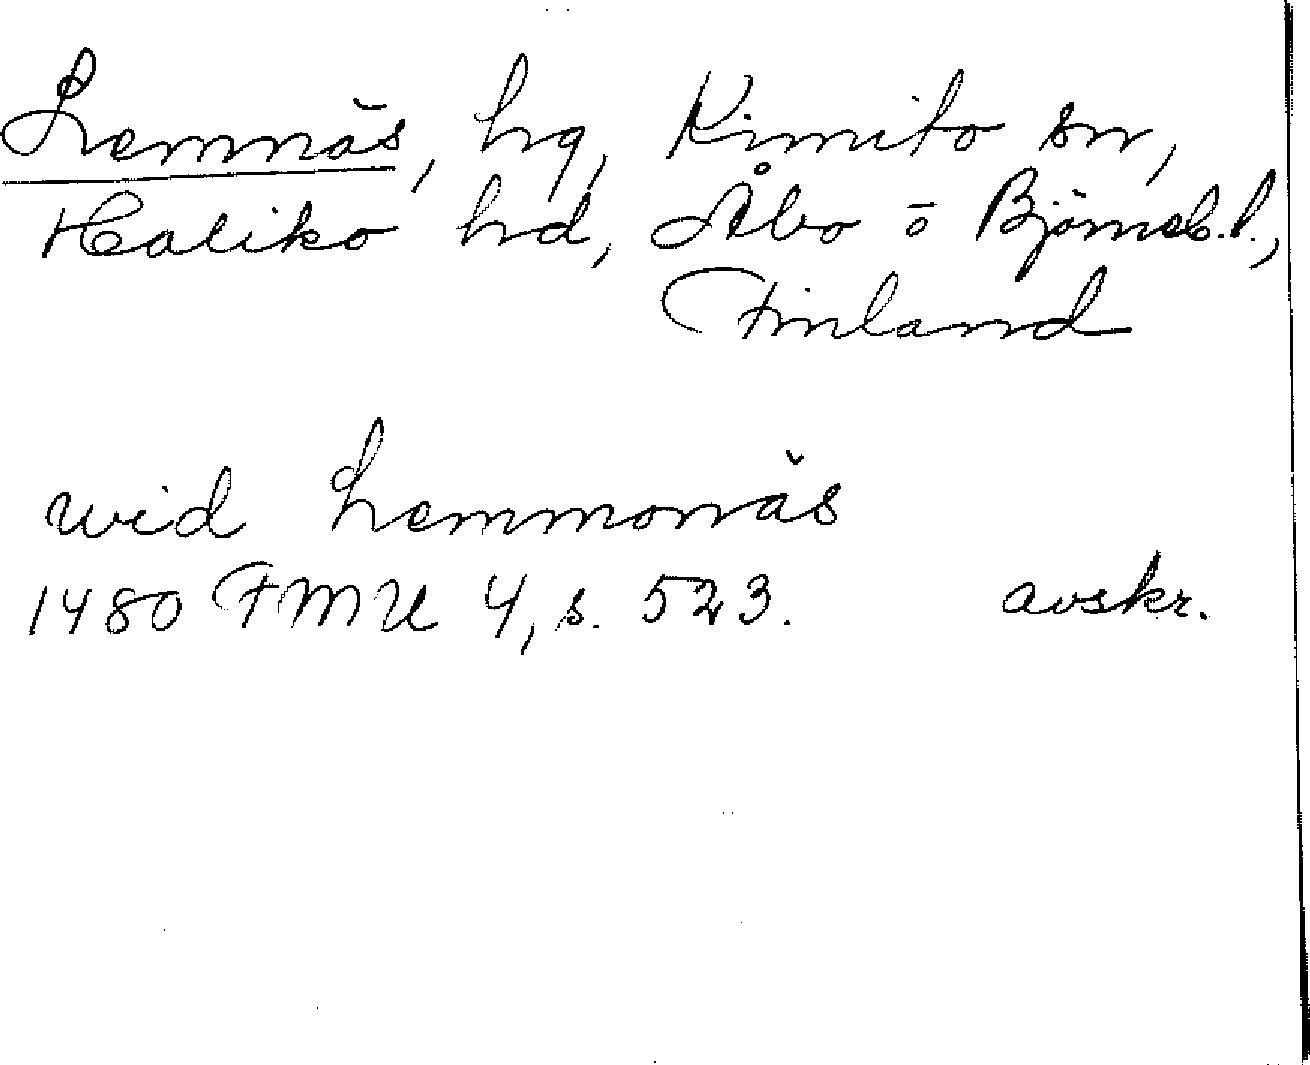 Lemnäs, hg, Kimito sn,
Haliko hd, Åbo ö Björneb.l.,
Finland
wid Lemmonäs
1480 FMU 4, s. 523. avskr.